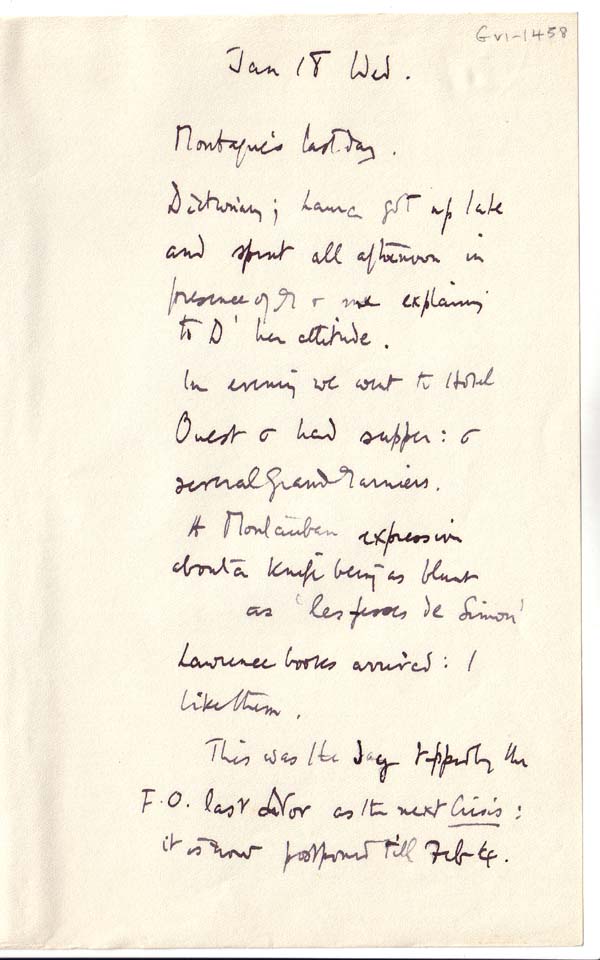 GVI-1458
Jan 18 Wed.
Montague's last day.
Dictionary; Laura got up late
and spent all afternoon in
presence of M & me explaining
to D' her attitude.
In evening we went to Hotel
Ouest & had supper: &
several Grand Marniers.
A Montauban expression
about a knife being as blunt
as 'les fesses de Simon'
Lawrence books arrived: I
like them.
This was the day tipped by the
F.O. last as the next Crisis:
it is now postponed till Feb 4.